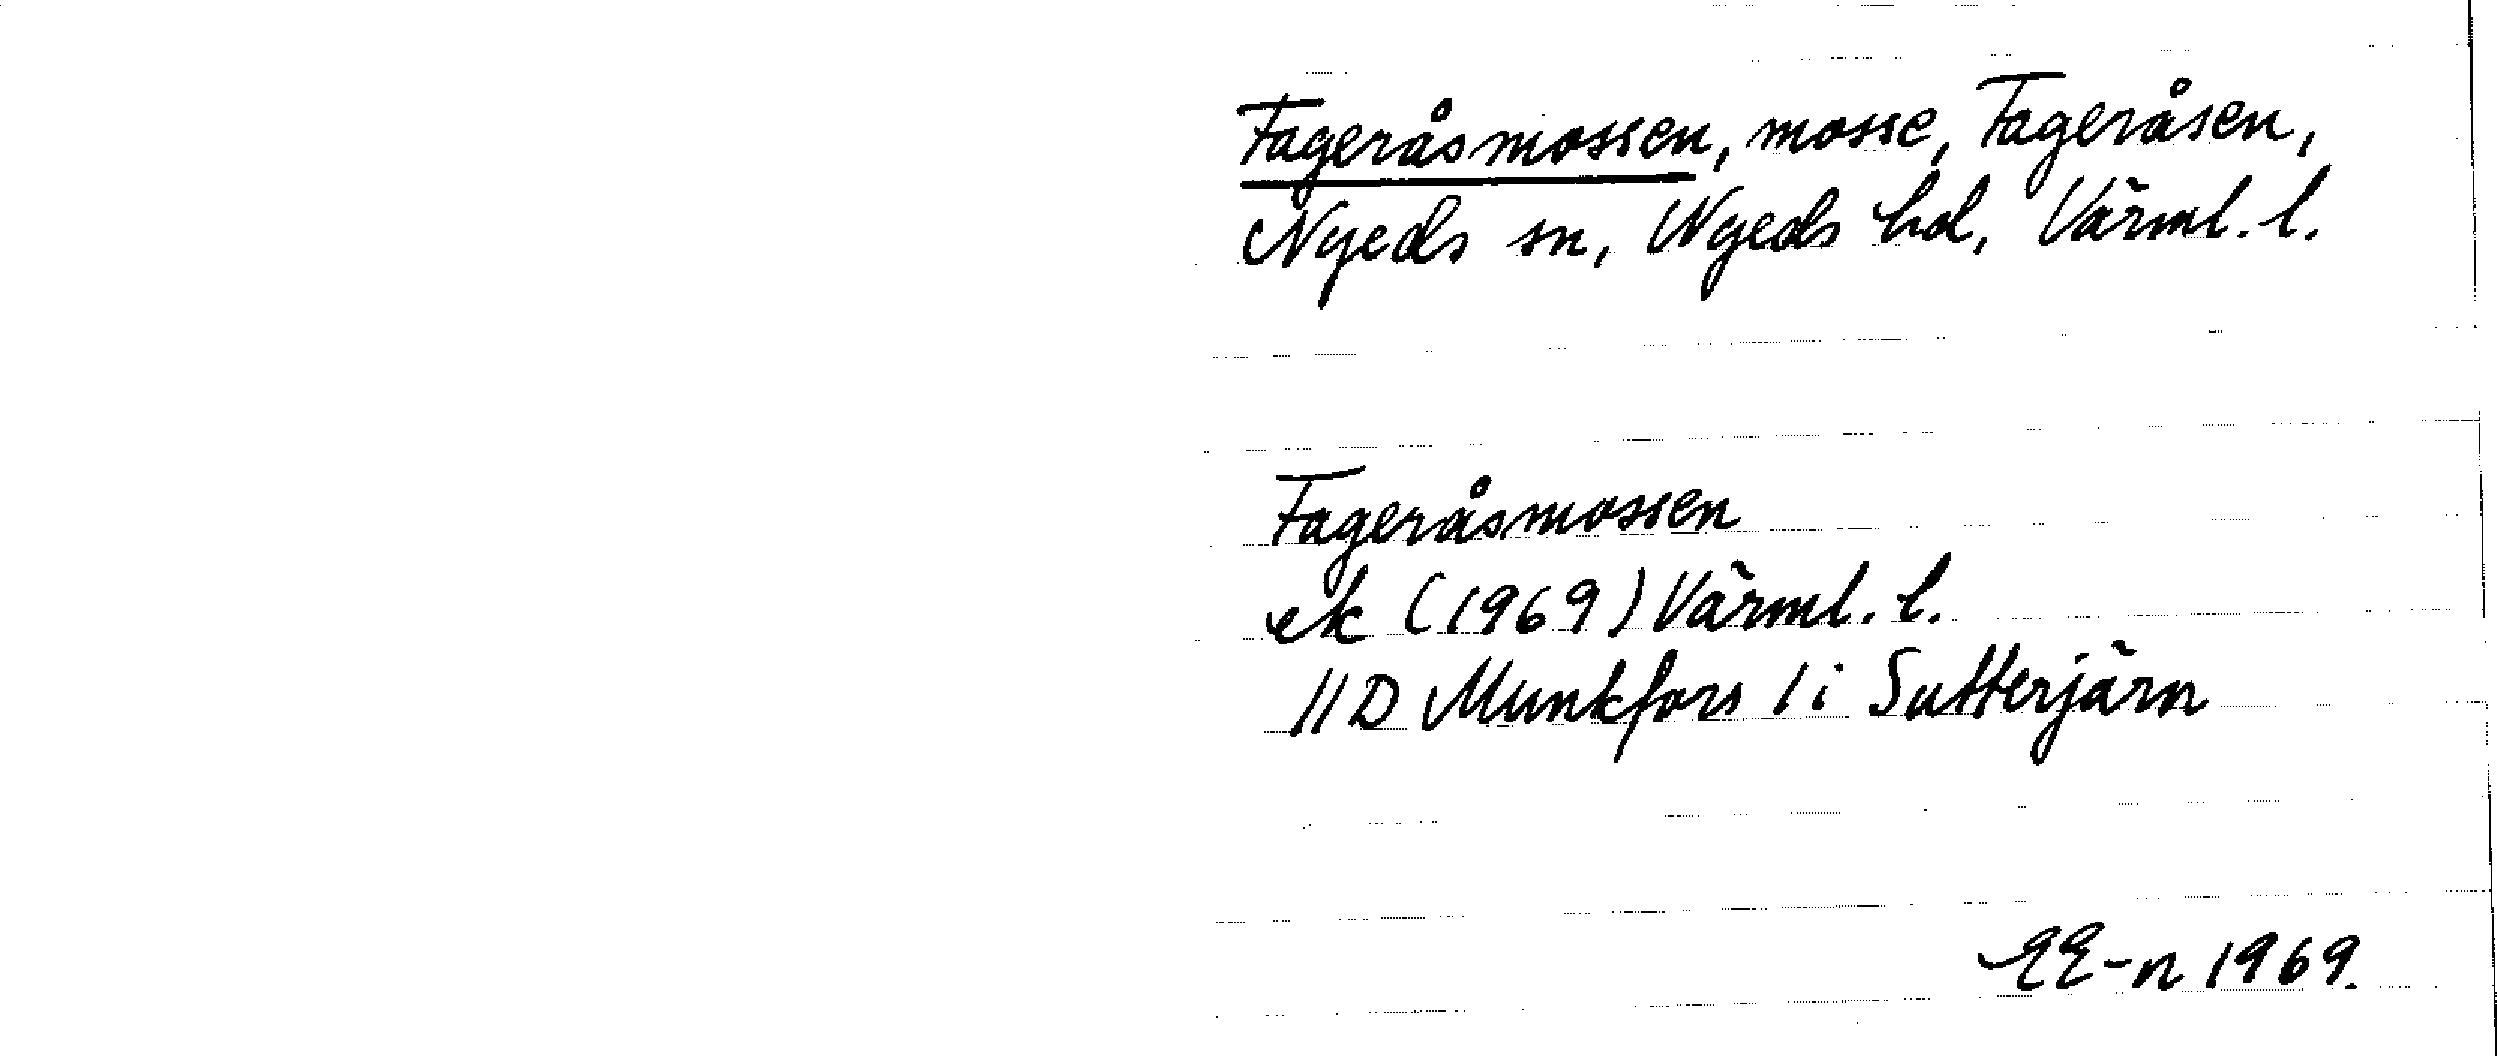 Fageråsmossen, mosse, Fageråsen,
Nyeds sn, Nyeds hd, Värml. l.
Fageråsmossen
ek (1969) Värml. l.
11D Munkfors 1i Sutterjärn
EE-n 1969.